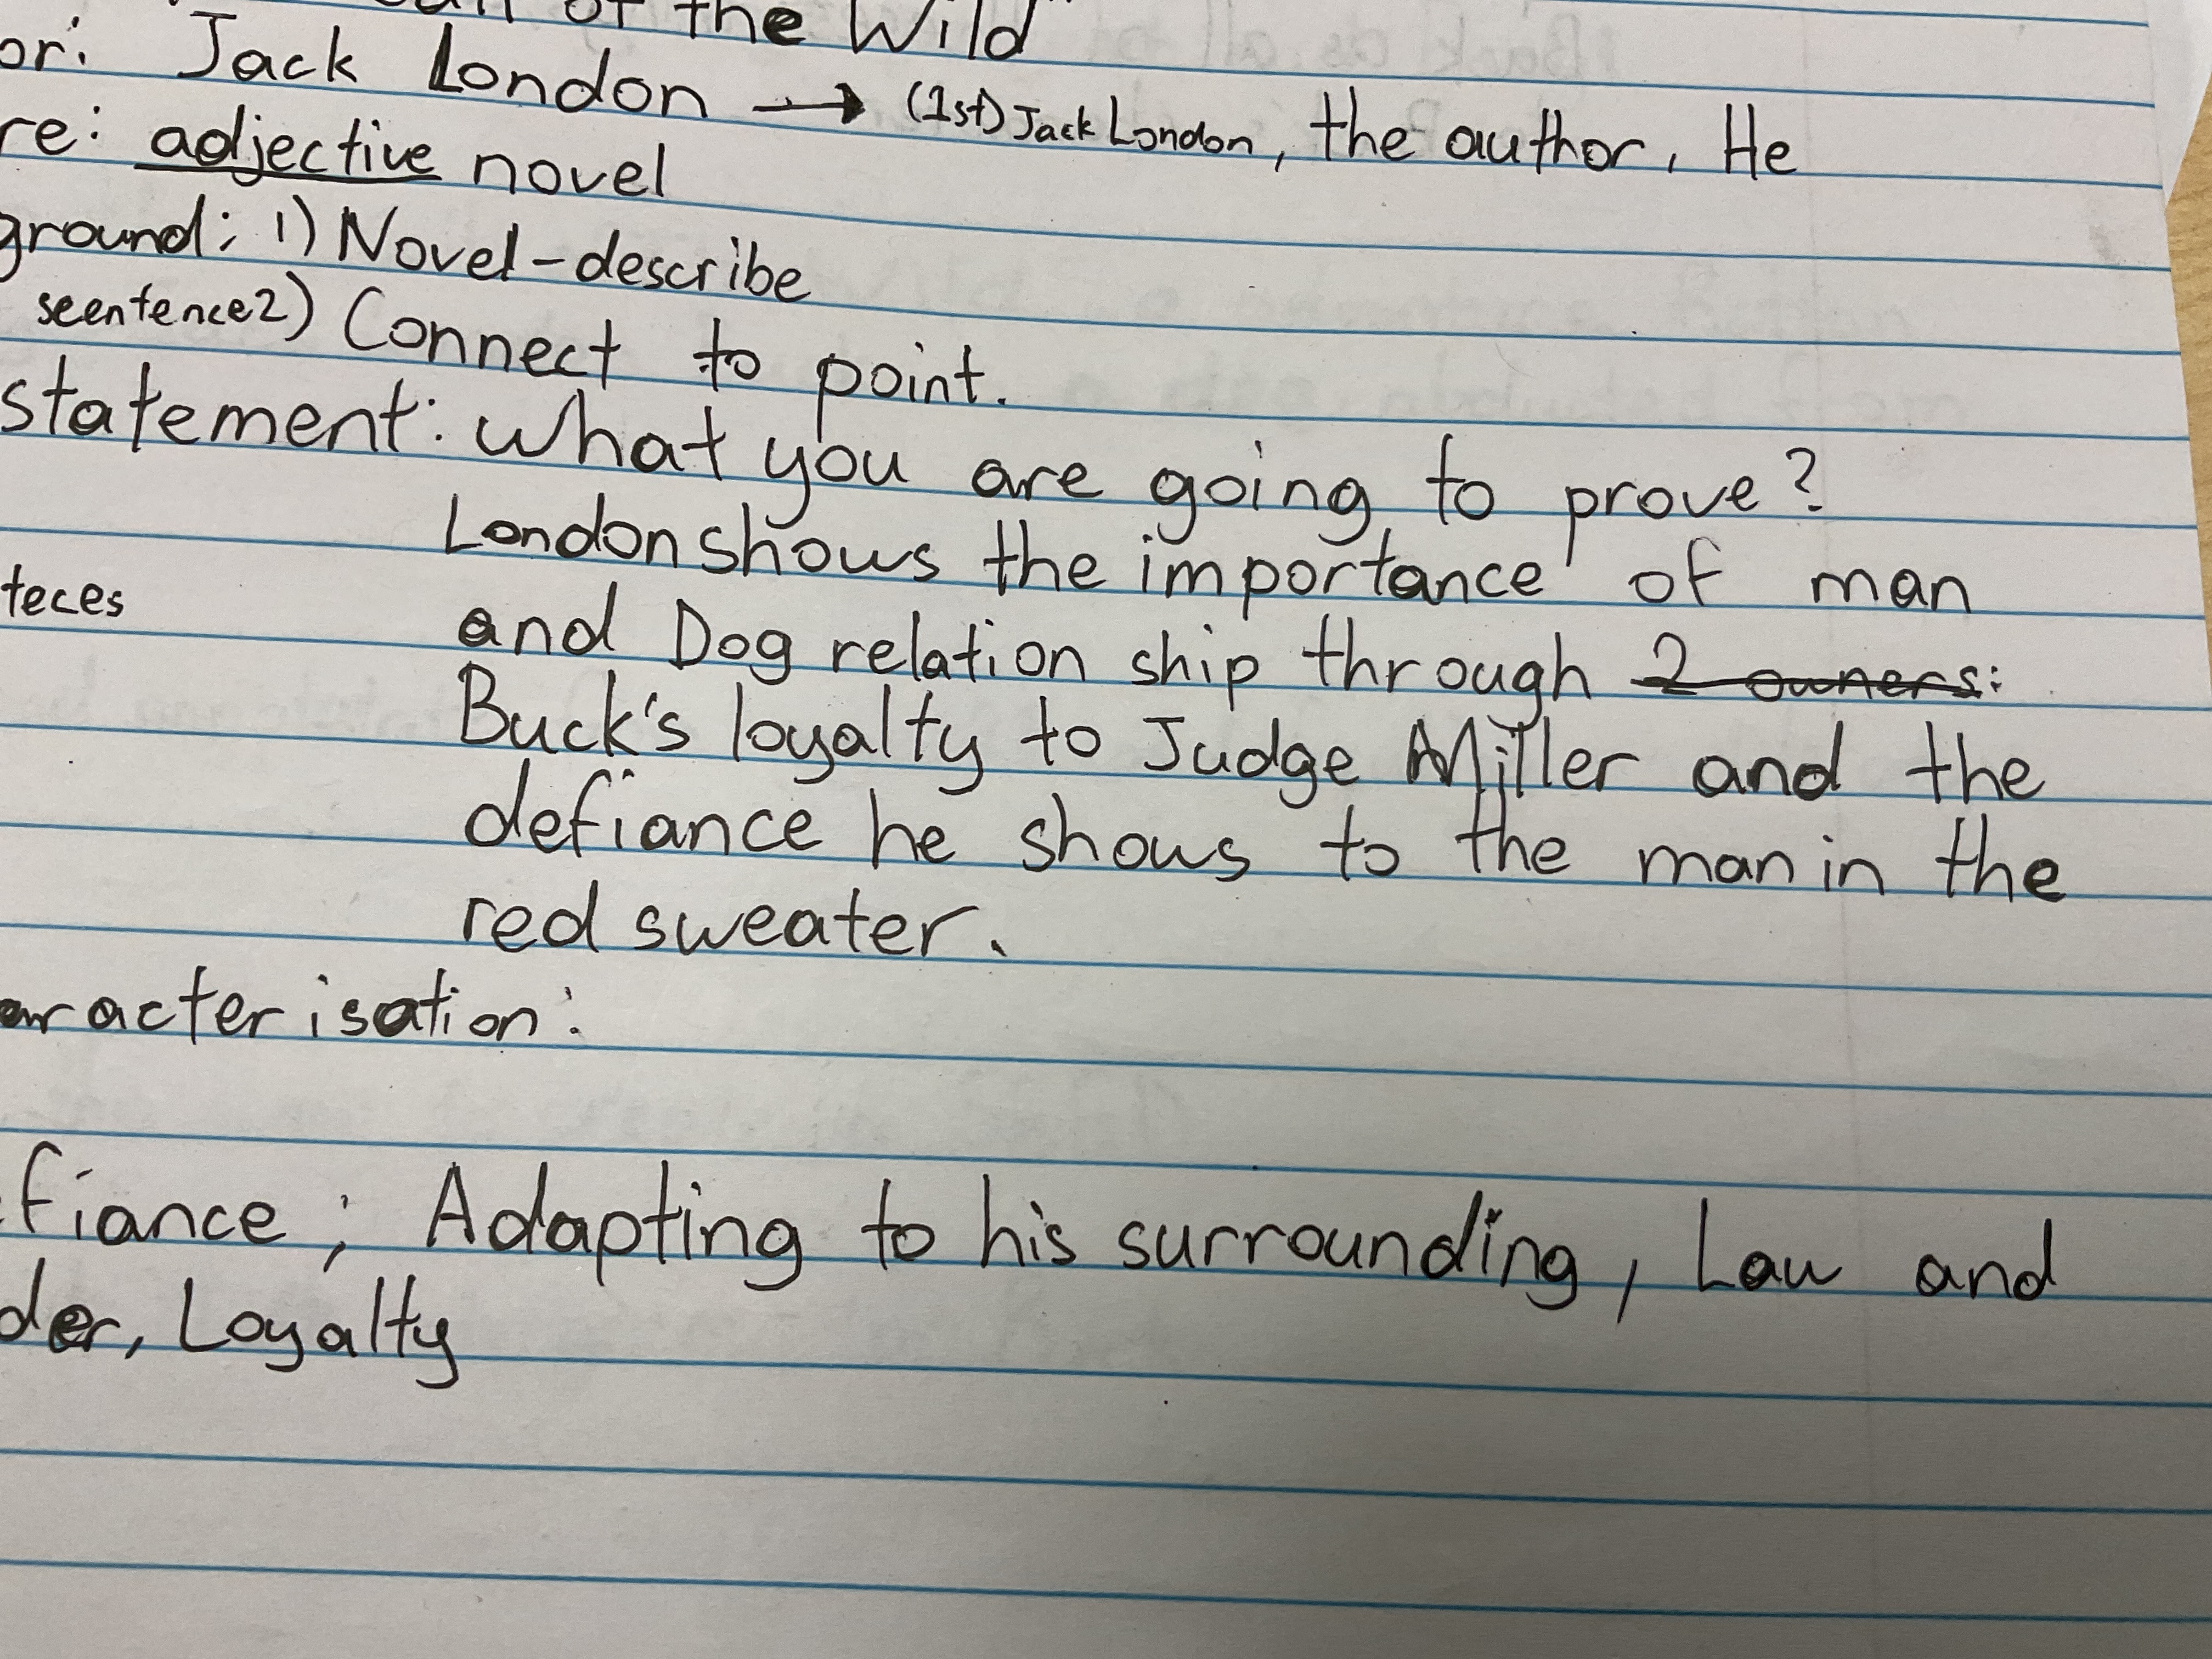 of the Wild
or: Jack London → (1st) Jack London, the author, He
re: adjective novel
ground: 1) Novel-describe
seentence 2) Connect to point.
statement: what you are going to prove?
London shows the importance of man
teces
and Dog relation ship through 2 owners:
Buck's loyalty to Judge Miller and the
defiance he shows to the man in the
red sweater.
aracterisation:
fiance; Adapting to his surrounding, Law and
der, Loyalty